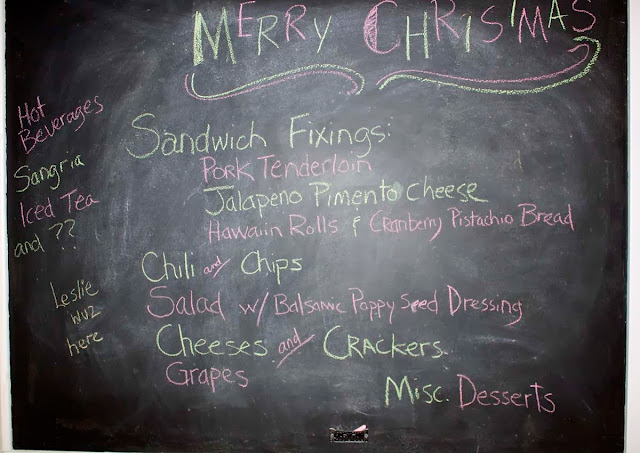 MERRY CHRISTMAS
Hot
Beverages
Sangria
Iced Tea
and ??
Leslie
wuz
here
Sandwich Fixings:
Pork Tenderloin
Jalapeno Pimento Cheese
Hawaiin Rolls & Cranberry Pistachio Bread
Chili and Chips
Salad w/ Balsamic Poppy Seed Dressing
Cheeses and Crackers
Grapes
Misc. Desserts